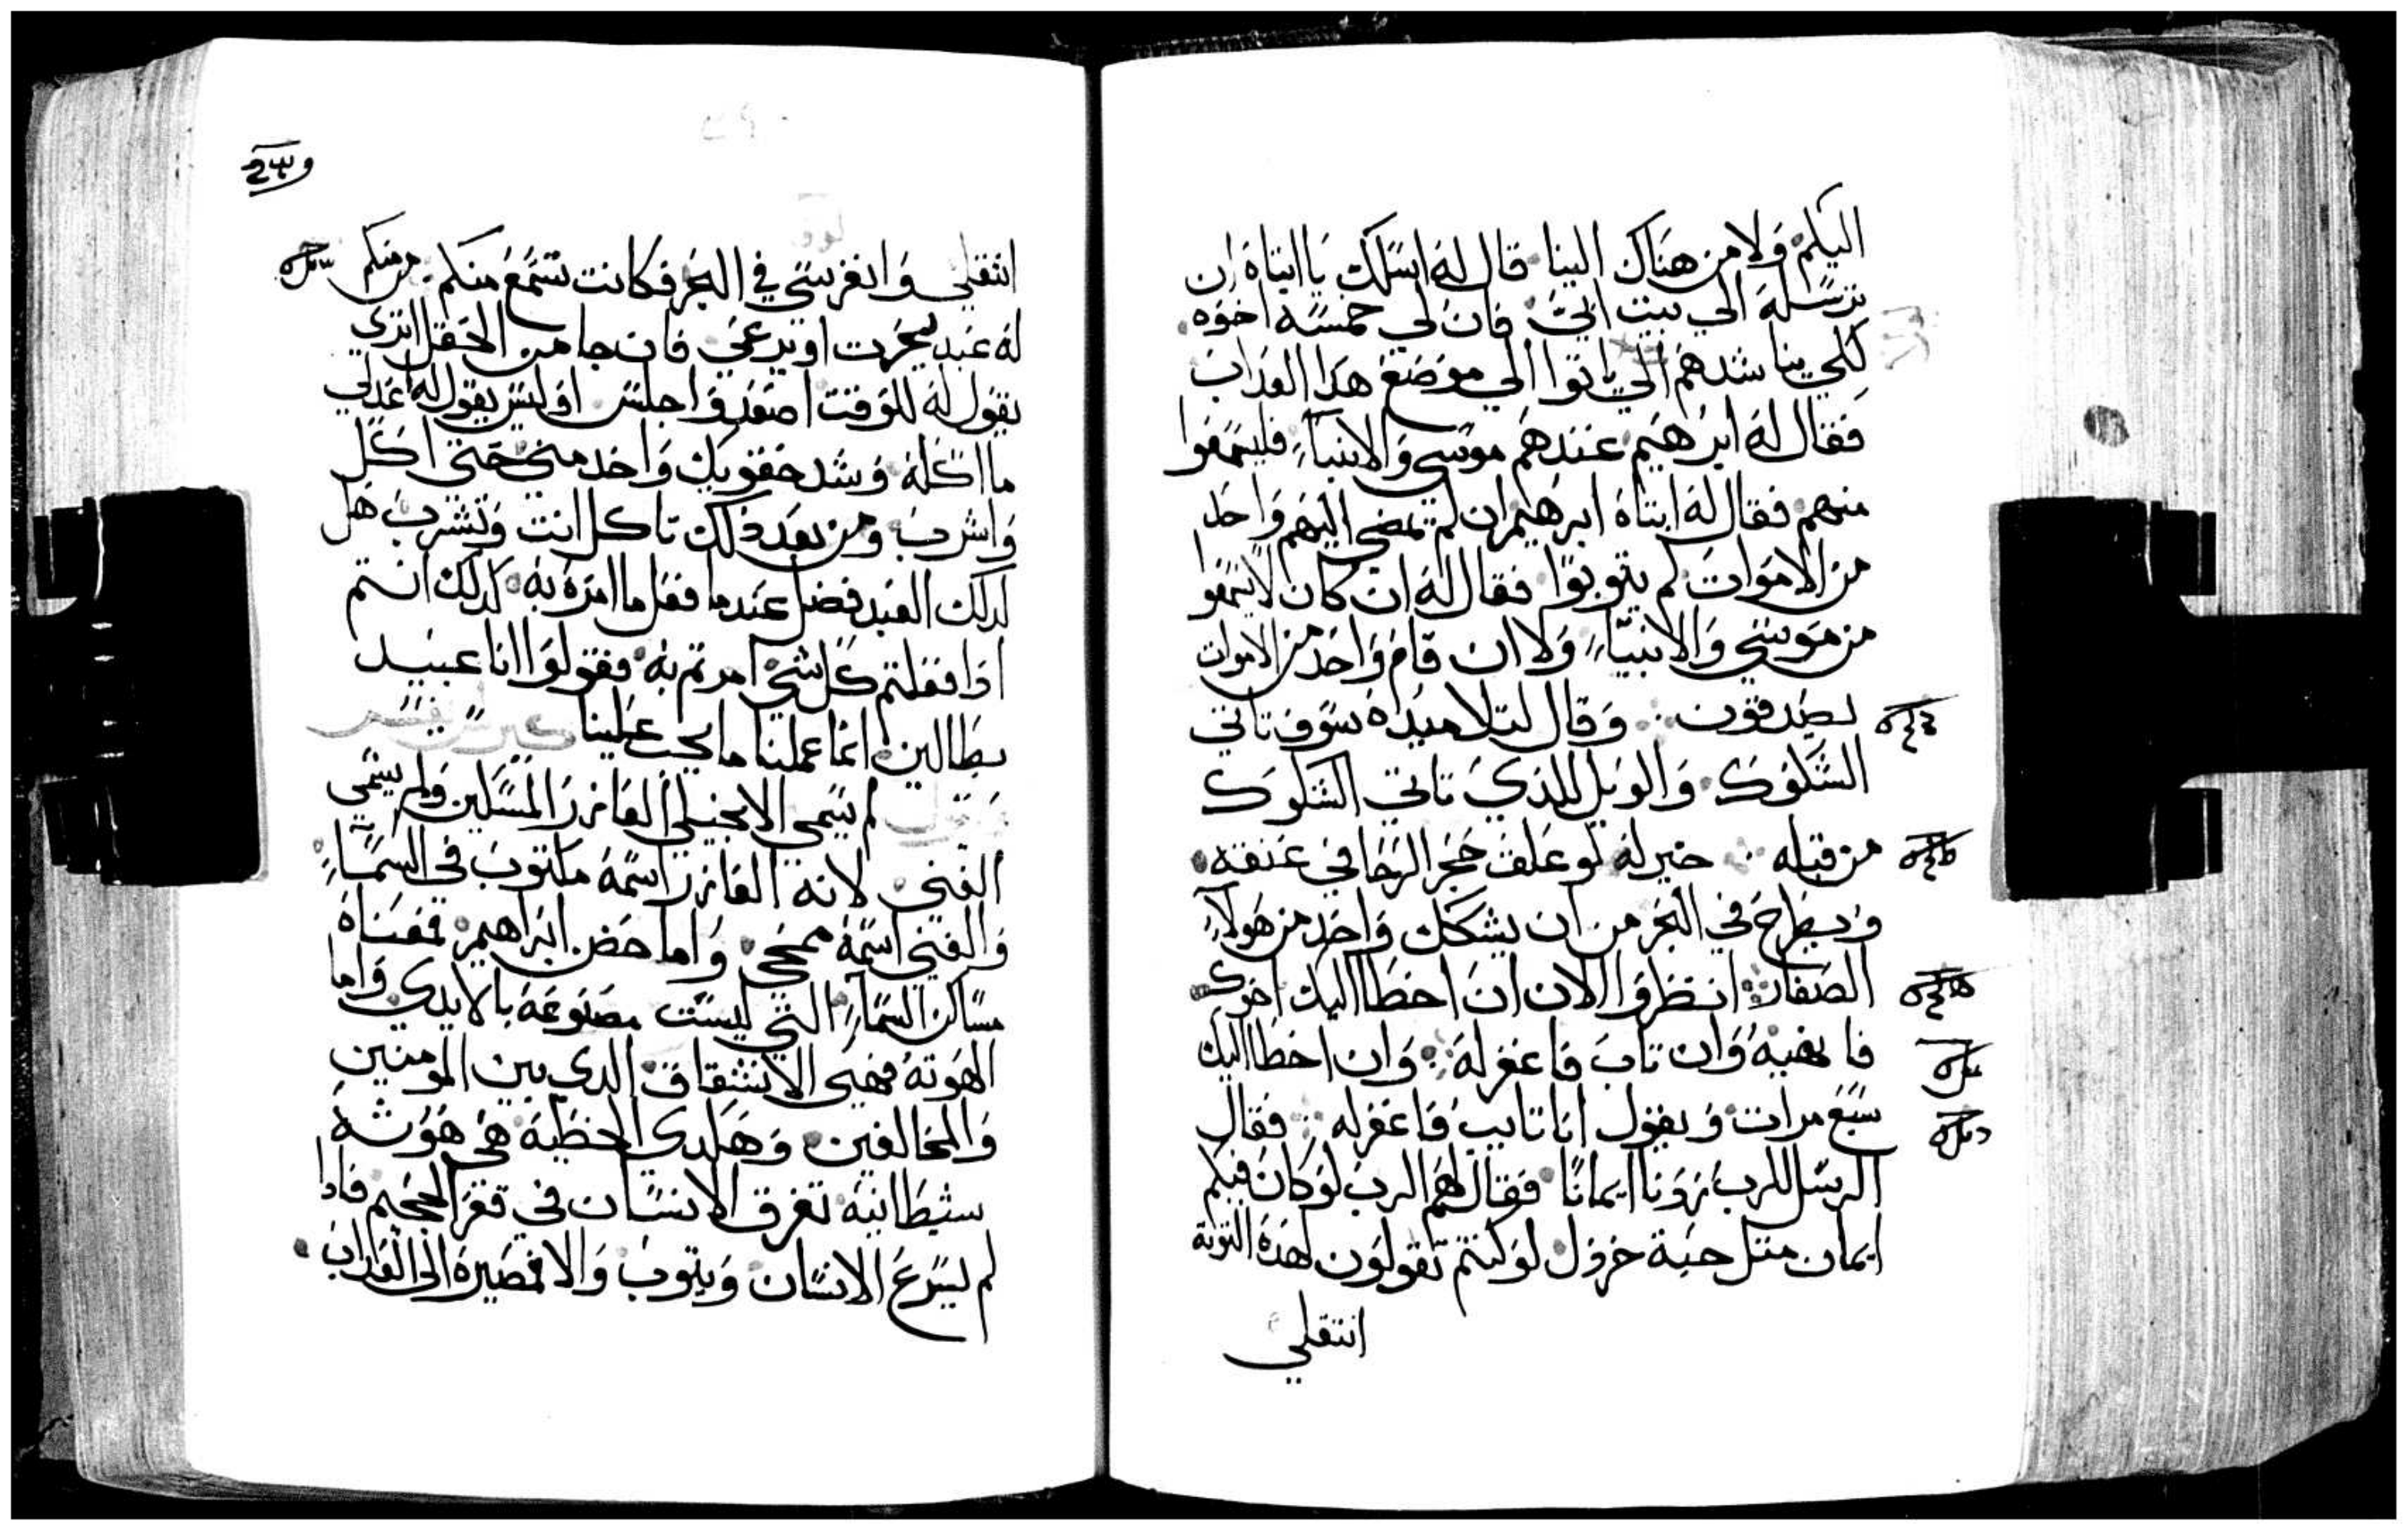 اليكم ولا من هناك الينا قال له اسلك يا ابتاه ان
ترسله الي بيت ابي فان لي خمسه اخوه
لكي يناشدهم الي ياتوا الي موضع هدا العداب
فقال له ابرهيم عندهم موسي والانبيآء فليسمعوا
منهم فقال له ابتاه ابرهيم ان لم يمضي اليهم واحد
من الاموات لم يتوبوا فقال له ان كان لا يسمعوا
من موسي والانبيآء ولا ان قام واحد من الاموات
يصدقون وقال لتلاميده سوف تاتي
الشكوك والويل للدي تاتي الشكوك
من قبله خير له لو علق حجر الرحا في عنقه
ويطرح في البحر من ان يشكك واحد من هولآء
الصغار انظروا الان ان اخطا اليك اخوك
فانهيه وان تاب فاغفر له وان اخطا اليك
سبع مرات ويقول انا تايب فاغفر له فقال
الرسل للرب زودنا ايمانا فقال لهم الرب لو كان فيكم
ايمان متل حبة خردل لو كنتم تقولون لهده التوتة
انتقلي
انتقلي وانغرسي في البحر فكانت تسمع منكم من منكم
له عبد يحرت او يرعي فان جا من الحقل اترى
يقول له للوقت اصعد واجلس اوليس يقول له اعد لي
ما اكله وشد حقويك واخدمني حتي اكل
واشرب ومن بعد دلك تاكل انت وتشرب هل
لدلك العبد فضل عندما فعل ما امره به كدلك انتم
ادا فعلتم كل شي امرتم به فقولوا انا عبيد
بطالين انما عملنا ما يجب علينا
لم يسمي الانجيل العازر المسكين ولم يسمي
الغني لانه العازر اسمه مكتوب في السمآء
والغني اسمه ممحي واما حضن ابراهيم فمعناه
مساكن السمآء التي ليست مصنوعة بالايدي واما
الهوته فهي الانشقاق الدي بين المومنين
والمخالفين وهكدي الخطية هي هوته
شيطانية تغرق الانسان في قعر الجحيم فادا
لم يسرع الانسان ويتوب والا فمصيره الي العداب